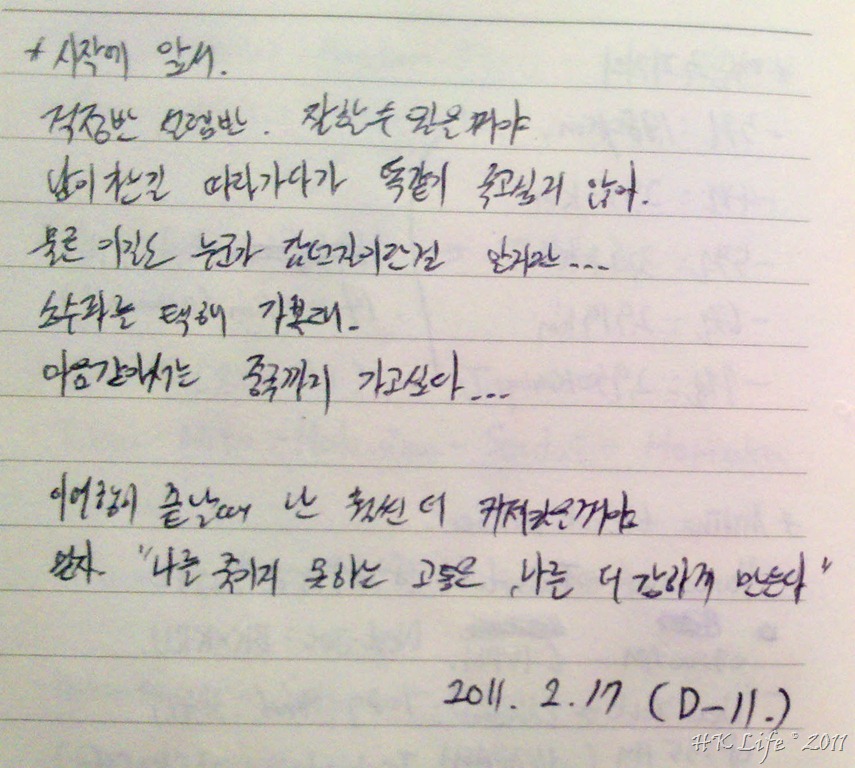 * 시작에 앞서.
걱정반 설렘반. 잘할수 있을꺼야
남이 찬길 따라가다가 똑같이 죽고싶지 않아.
물론 이길도 누군가 갔던길이란걸 알지만...
소수라는 택해 가볼래.
마음같아서는 중국까지 가고싶다...
이여행이 끝날때 난 훨씬 더 커져있을꺼임
믿자. "나를 죽이지 못하는 고통은, 나를 더 강하게 만든다"
2011. 2. 17 (D-11.)
HK Life ° 2011